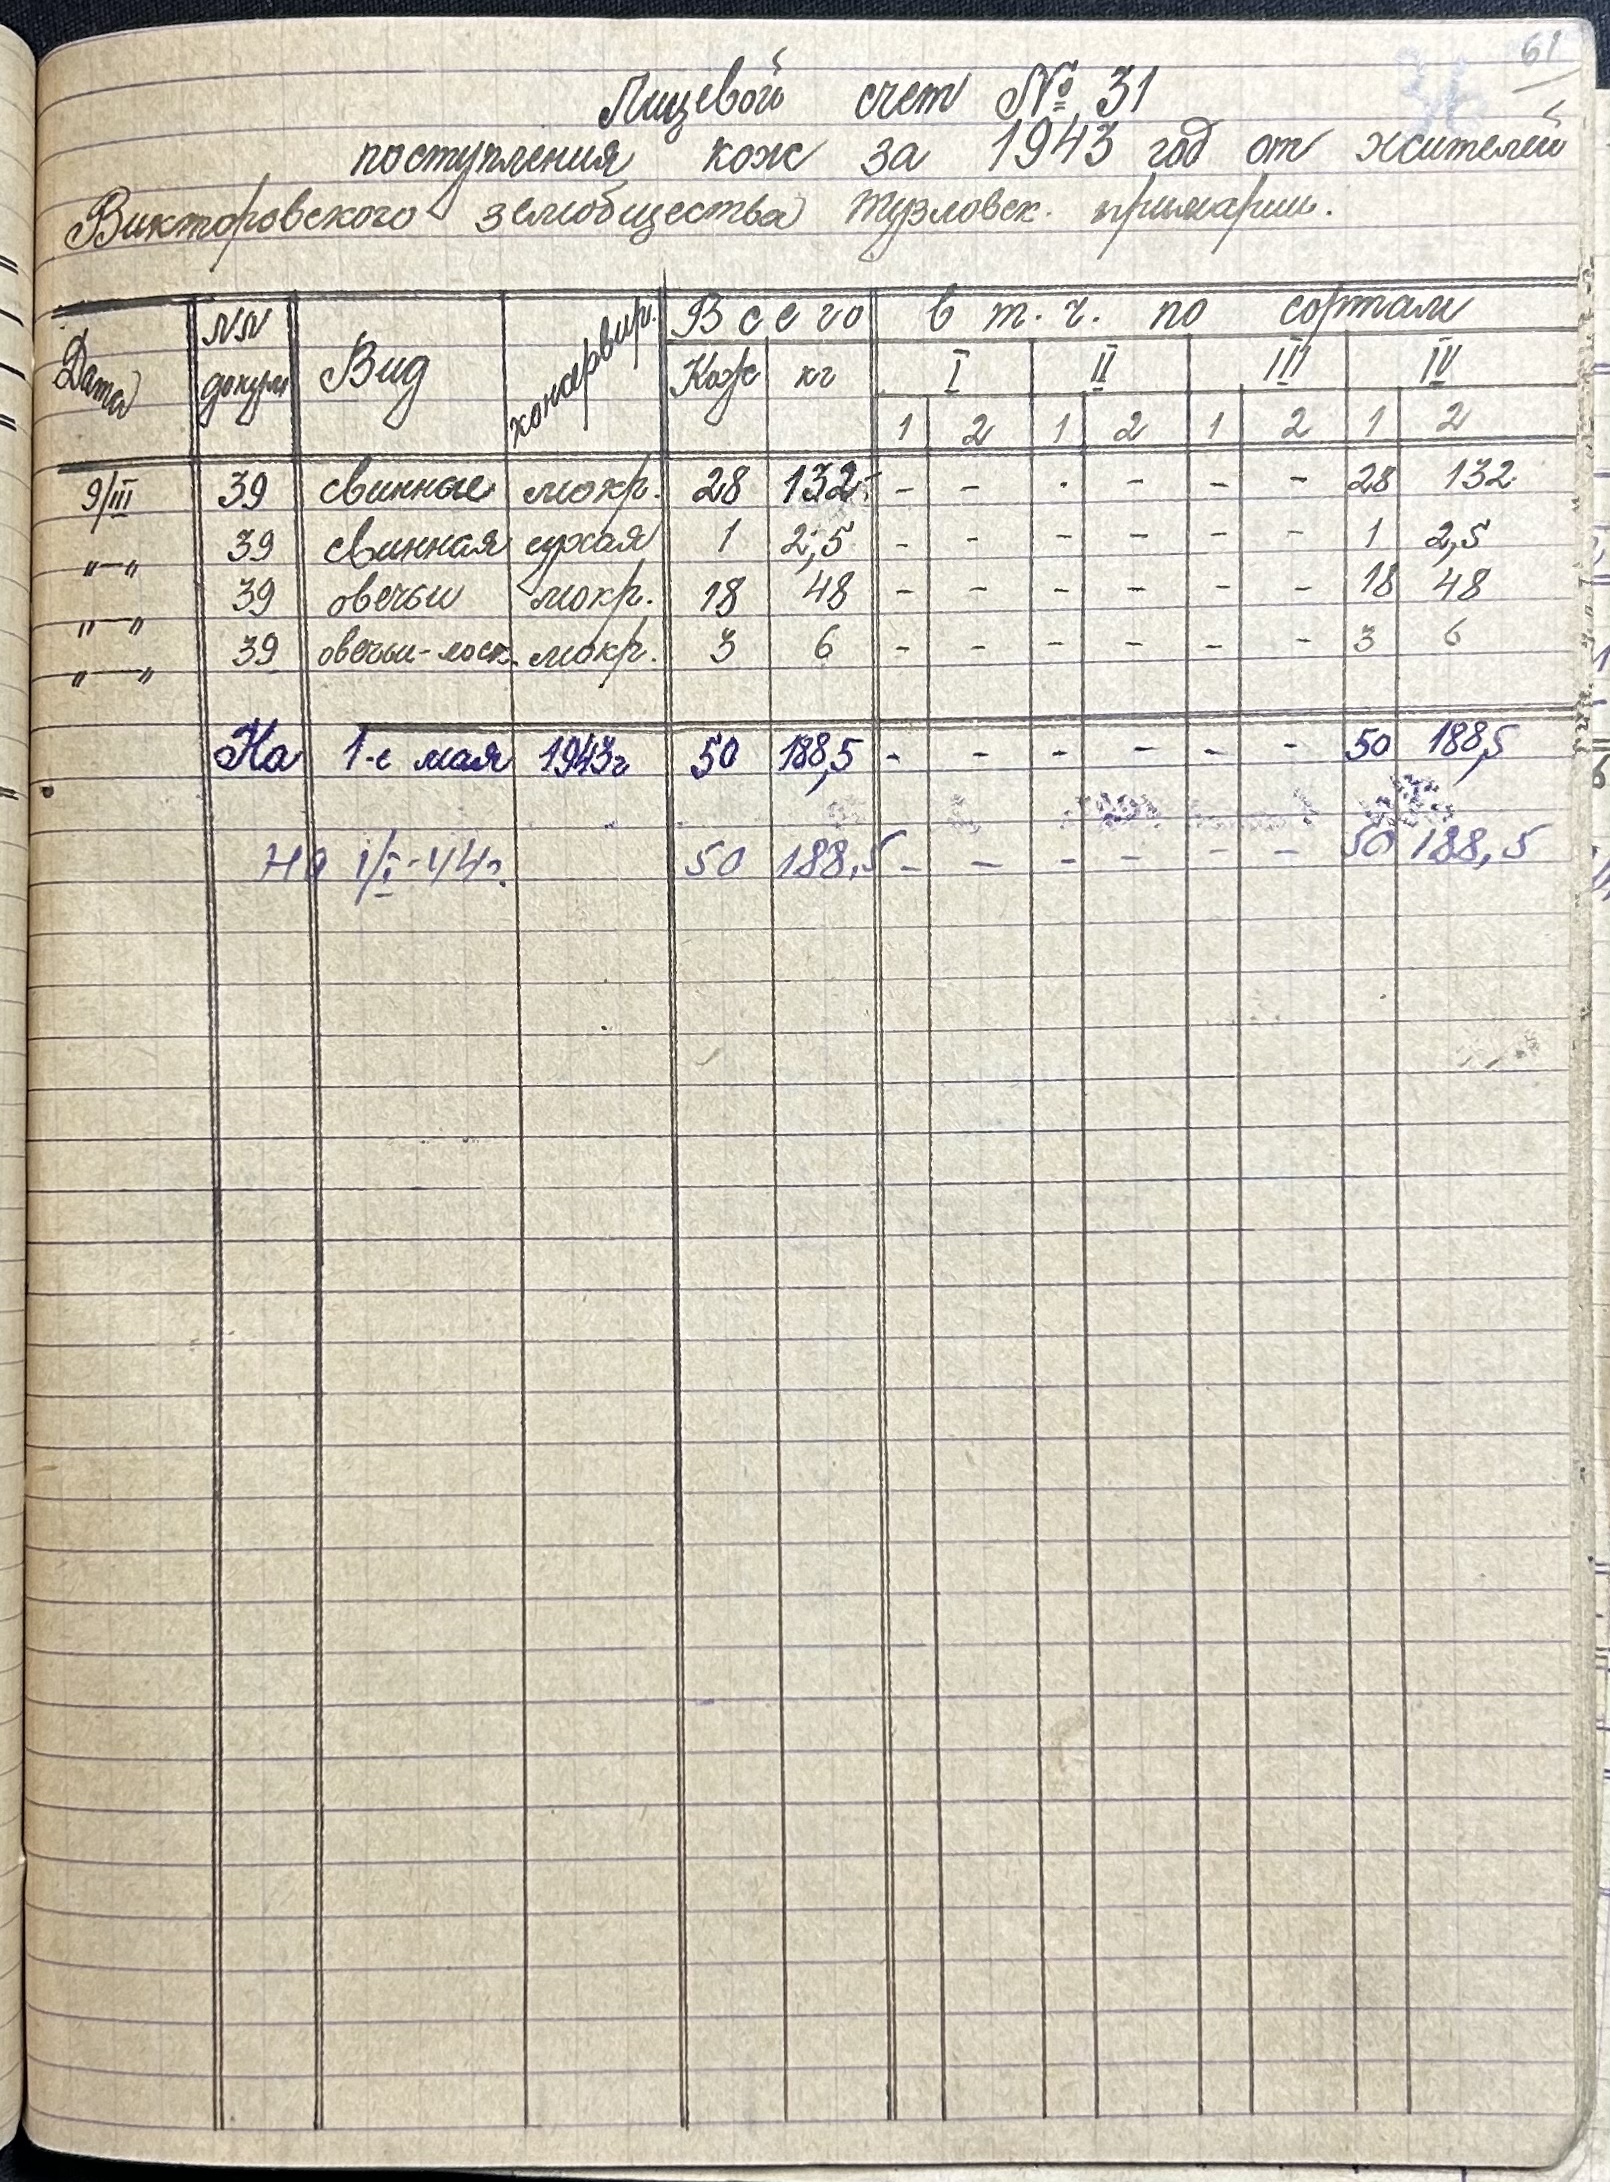 61
36
Лицевой счет № 31
поступления кож за 1943 год от жителей
Викторовскогоземобщества Тузловск. примарии.
Дата №№ докум Вид консервир. Всего в т. ч. по сортам
Кож кг I II III IV
1 2 1 2 1 2 1 2
9/III 39 свинные мокр. 28 132 - - - - - - 28 132
"—" 39 свинная сухая 1 2,5 - - - - - - 1 2,5
"—" 39 овечьи мокр. 18 48 - - - - - - 18 48
"—" 39 овечьи-лоск. мокр. 3 6 - - - - - - 3 6
На 1-е мая 1943г 50 188,5 - - - - - - 50 188,5
На 1/I-44г. 50 188,5 - - - - - - 50 188,5